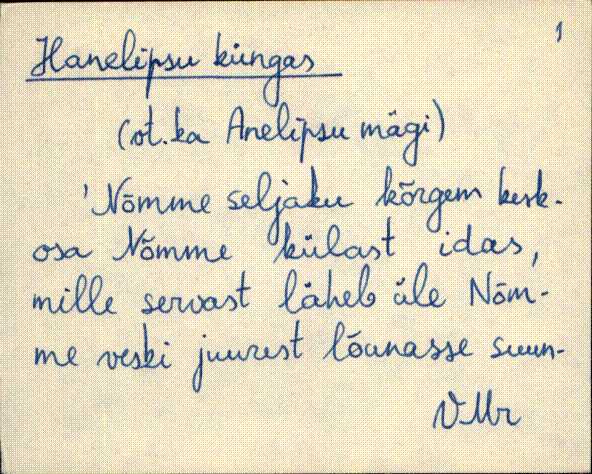 1
Hanelipsu küngas
(vt. ka Anelipsu mägi)
'Nõmme seljaku kõrgem kesk-
osa Nõmme külast idas,
mille servast läheb üle Nõm-
me veski juurest lõunasse suun-
VMr